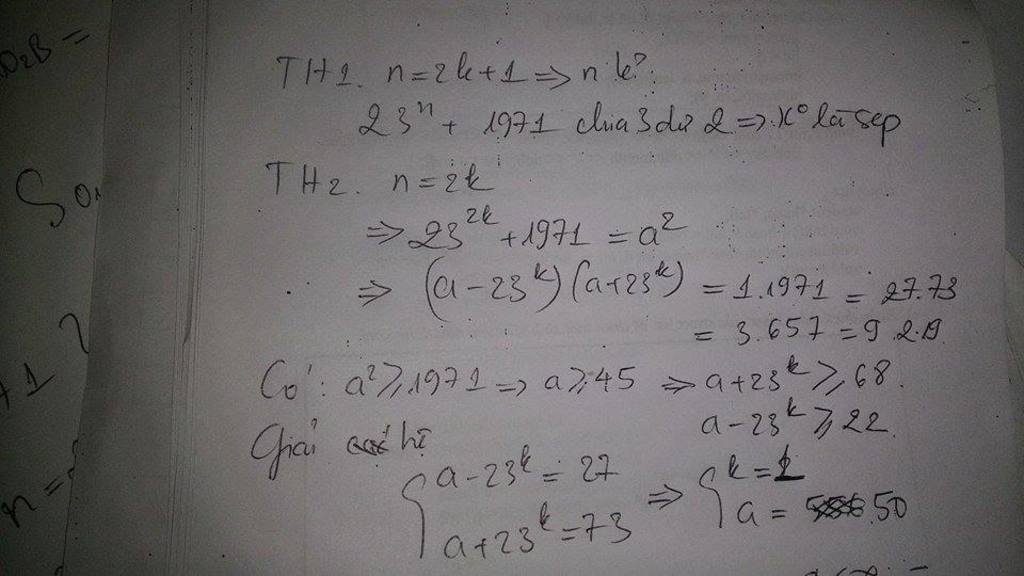 O2B =
TH1. n = 2k+1 => n k°.
23ⁿ + 1971 chia 3 dư 2 => k° là scp
TH2. n = 2k
=> 23^{2k} + 1971 = a²
=> (a - 23^k)(a+23^k) = 1.1971 = 27.73
= 3.657 = 9.219
Có: a² ≥ 1971 => a ≥ 45 => a+23^k ≥ 68.
a - 23^k ≥ 22
Giải hệ
{ a - 23^k = 27 => { k = 1
a + 23^k = 73 a = 50
+1
n =